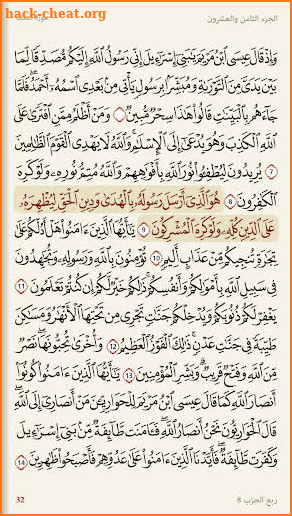 الجزء الثامن والعشرون
hack-cheat.org
وَإِذْ قَالَ عِيسَى ٱبْنُ مَرْيَمَ يَٰبَنِىٓ إِسْرَٰٓءِيلَ إِنِّى رَسُولُ ٱللَّهِ إِلَيْكُم مُّصَدِّقًا لِّمَا
بَيْنَ يَدَىَّ مِنَ ٱلتَّوْرَىٰةِ وَمُبَشِّرًۢا بِرَسُولٍ يَأْتِى مِنۢ بَعْدِى ٱسْمُهُۥٓ أَحْمَدُ ۖ فَلَمَّا
جَآءَهُم بِٱلْبَيِّنَٰتِ قَالُوا۟ هَٰذَا سِحْرٌ مُّبِينٌ وَمَنْ أَظْلَمُ مِمَّنِ ٱفْتَرَىٰ عَلَى
ٱللَّهِ ٱلْكَذِبَ وَهُوَ يُدْعَىٰٓ إِلَى ٱلْإِسْلَٰمِ ۚ وَٱللَّهُ لَا يَهْدِى ٱلْقَوْمَ ٱلظَّٰلِمِينَ
7 يُرِيدُونَ لِيُطْفِـُٔوا۟ نُورَ ٱللَّهِ بِأَفْوَٰهِهِمْ وَٱللَّهُ مُتِمُّ نُورِهِۦ وَلَوْ كَرِهَ
ٱلْكَٰفِرُونَ 8 هُوَ ٱلَّذِىٓ أَرْسَلَ رَسُولَهُۥ بِٱلْهُدَىٰ وَدِينِ ٱلْحَقِّ لِيُظْهِرَهُۥ
عَلَى ٱلدِّينِ كُلِّهِۦ وَلَوْ كَرِهَ ٱلْمُشْرِكُونَ 9 يَٰٓأَيُّهَا ٱلَّذِينَ ءَامَنُوا۟ هَلْ أَدُلُّكُمْ عَلَىٰ
تِجَٰرَةٍ تُنجِيكُم مِّنْ عَذَابٍ أَلِيمٍ 10 تُؤْمِنُونَ بِٱللَّهِ وَرَسُولِهِۦ وَتُجَٰهِدُونَ
فِى سَبِيلِ ٱللَّهِ بِأَمْوَٰلِكُمْ وَأَنفُسِكُمْ ۚ ذَٰلِكُمْ خَيْرٌ لَّكُمْ إِن كُنتُمْ تَعْلَمُونَ 11
يَغْفِرْ لَكُمْ ذُنُوبَكُمْ وَيُدْخِلْكُمْ جَنَّٰتٍ تَجْرِى مِن تَحْتِهَا ٱلْأَنْهَٰرُ وَمَسَٰكِنَ
طَيِّبَةً فِى جَنَّٰتِ عَدْنٍ ۚ ذَٰلِكَ ٱلْفَوْزُ ٱلْعَظِيمُ 12 وَأُخْرَىٰ تُحِبُّونَهَا ۖ نَصْرٌ
مِّنَ ٱللَّهِ وَفَتْحٌ قَرِيبٌ ۗ وَبَشِّرِ ٱلْمُؤْمِنِينَ 13 يَٰٓأَيُّهَا ٱلَّذِينَ ءَامَنُوا۟ كُونُوٓا۟
أَنصَارَ ٱللَّهِ كَمَا قَالَ عِيسَى ٱبْنُ مَرْيَمَ لِلْحَوَارِيِّـۧنَ مَنْ أَنصَارِىٓ إِلَى ٱللَّهِ ۖ
قَالَ ٱلْحَوَارِيُّونَ نَحْنُ أَنصَارُ ٱللَّهِ ۖ فَـَٔامَنَت طَّآئِفَةٌ مِّنۢ بَنِىٓ إِسْرَٰٓءِيلَ
وَكَفَرَت طَّآئِفَةٌ ۖ فَأَيَّدْنَا ٱلَّذِينَ ءَامَنُوا۟ عَلَىٰ عَدُوِّهِمْ فَأَصْبَحُوا۟ ظَٰهِرِينَ 14
ربع الحزب 8
32